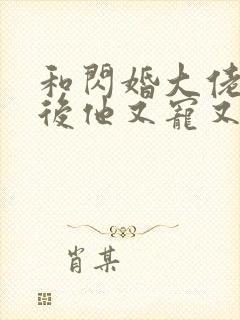 和閃婚大佬
後他又寵又
肖某